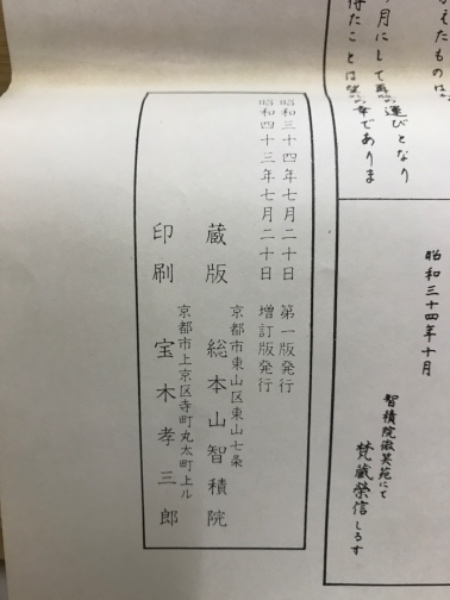 えたものは
月にして再
運びとなり
得たことは
幸でありま
昭和三十四年十月
智積院
にて
梵蔵榮信しるす
昭和三十四年七月二十日 第一版発行
昭和四十三年七月二十日 増訂版発行
京都市東山区東山七条
蔵版 総本山智積院
京都市上京区寺町丸太町上ル
印刷 宝木孝三郎